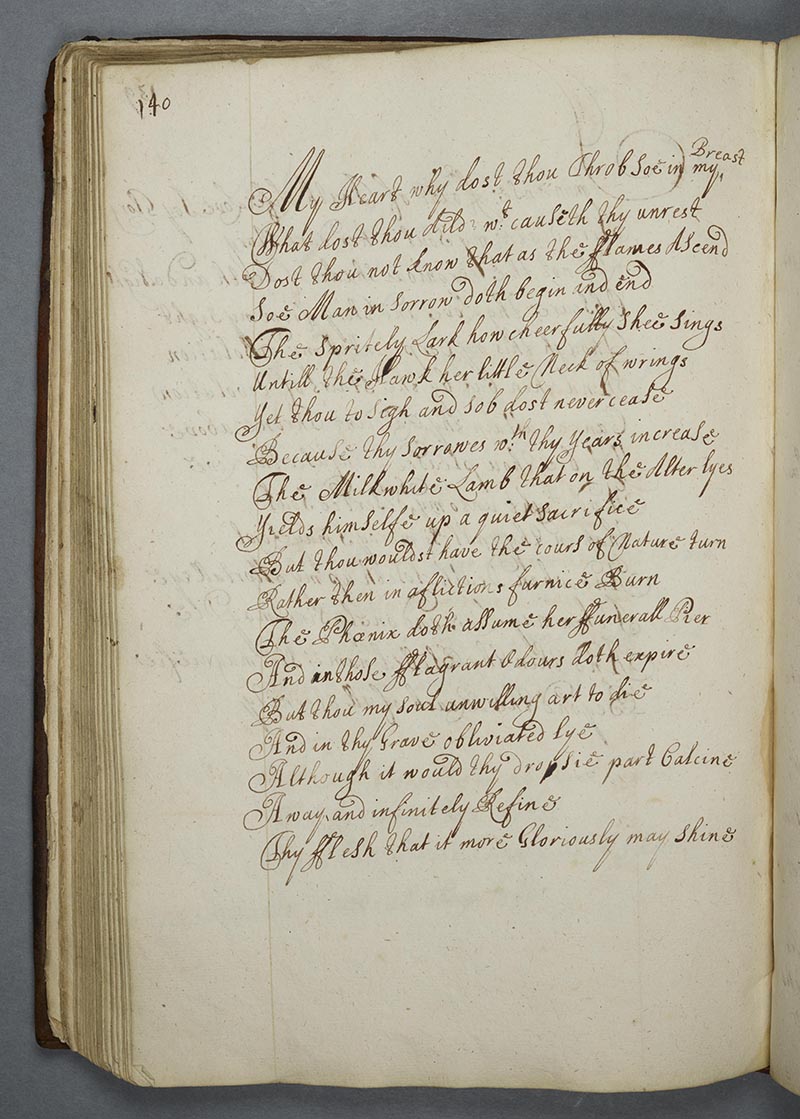 140
My Heart why dost thou Throb Soe in my Breast
What dost thou aild wt causeth thy unrest
Dost thou not know that as the fflames Ascend
Soe Man in Sorrow doth begin and end
The Spritely Lark how cheerfully Shee Sings
Untill the Hawk her little Neck of wrings
Yet thou to Sigh and Sob dost never cease
Because thy Sorrowes wth thy Years increase
The Milkwhite Lamb that on the Alter lyes
Yields himselfe up a quiet Sacrifice
But thou wouldst have the cours of Nature turn
Rather then in aflictions furnice Burn
The Phœnix doth assume her ffunerall Pier
And in those fflagrant Odours doth expire
But thou my Soul unwilling art to die
And in thy Grave obliviated lye
Although it would thy dropsie part Calcine
Away and infinitely Refine
Thy fflesh that it more Gloriously may Shine